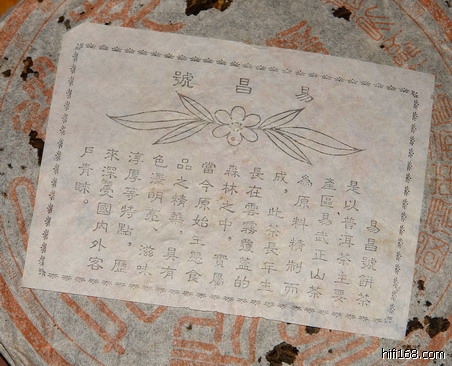 易昌號
易昌號餅茶
是以普洱茶主要
產區易武正山茶
為原料精制而
成，此茶長年生
長在雲霧覆蓋的
森林之中，實屬
當今原始生態食
品之精華，具有
色澤明亮、滋味
淳厚等特點，歷
來深受國內外客
戶青睞。
hifi168.com